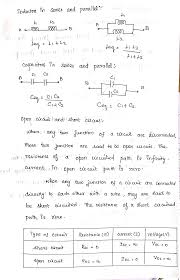 Inductor in series and parallel:-
L1 L2
L1
L2
Leq = L1 + L2
Leq = L1 L2
L1 + L2
Capacitor in series and parallel:
C1 C2
C1
C2
Ceq = C1 C2
C1 + C2
Ceq = C1 + C2
Open circuit and short circuit:
When any two junction of a circuit are disconnected
these two junction are said to be open circuit. The
resistance of a open circuited path is infinity.
current in open circuit path is zero.
When any two junction of a circuit are connected
directly to each other with a wire, they are said to
be short circuited. The resistance of a short circuited
path is zero.
Type of circuit Resistance (R) current (I) voltage (V)
Short circuit
Open circuit